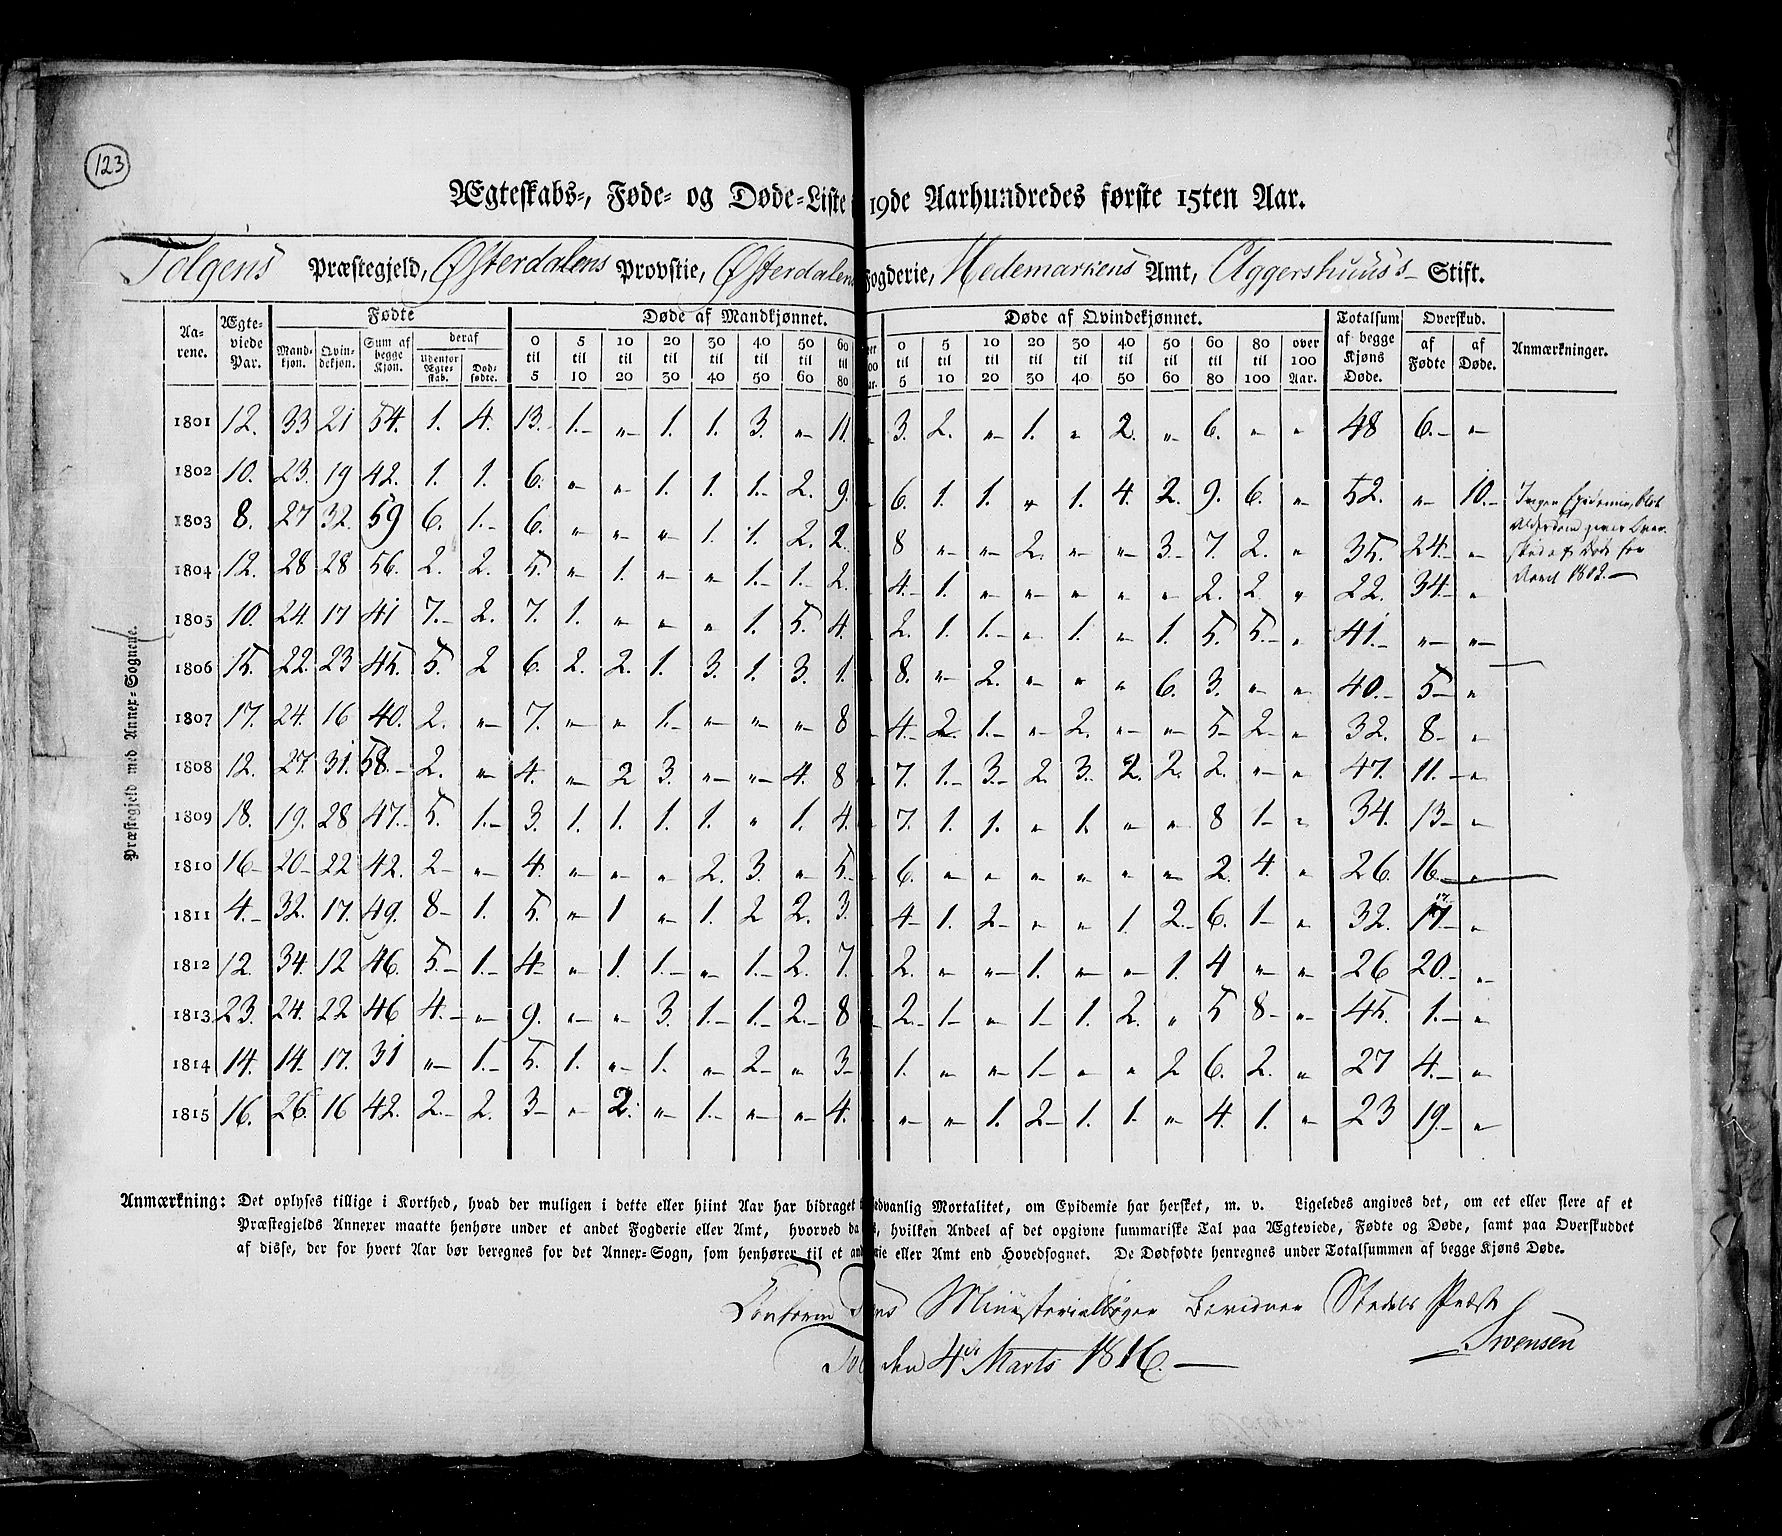 123
Ægteskabs-, Føde- og Døde-Liste 19de Aarhundredes første 15ten Aar.
Tolgens Præstegjeld, Østerdalens Provstie, Østerdalens Fogderie, Hedemarkens Amt, Aggershuus's Stift.
Aarene. Ægteviede Par. Fødte Døde af Mandkjønnet. Døde af Qvindekjønnet. Totalsum af begge Kjøns Døde. Overskud. Anmærkninger.
Mandkjøn. Qvindekjøn. Sum af begge Kjøn. deraf Udenfor Ægteskab. Dødfødte. 0 til 5 5 til 10 10 til 20 20 til 30 30 til 40 40 til 50 50 til 60 60 til 80 0 til 5 5 til 10 10 til 20 20 til 30 30 til 40 40 til 50 50 til 60 60 til 80 80 til 100 over 100 Aar. af Fødte af Døde.
Præstegjeld med Annex-Sognene.
1801 12. 33 21 54. 1. 4. 13. 1. " 1. 1. 3. " 11. 3. 2. " 1. " 2. " 6. " " 48 6. "
1802 10. 23. 19 42. 1. 1. 6. " " 1. 1. 1. 2. 9. 6. 1. 1. " 1. 4. 2. 9. 6. " 52. " 10.
1803 8. 27 32. 59 6. 1. 6. " " " 1. 1. 2. 2. 8 " " 2. " " 3. 7. 2. " 35. 24. "
1804 12. 28 28 56. 2. 2. 5. " 1. " " 1. 1. 2. 4. 1. " " " " " 2. 2. " 22. 34. "
1805 10. 24. 17 41 7. 2. 7. 1. " " " 1. 5. 4. 2. 1. 1. " 1. " 1. 5. 5. " 41. " "
1806 15. 22. 23 45. 5. 2 6. 2. 2. 1. 3. 1. 3. 1. 8. " 2. " " " 6. 3. " " 40. 5 "
1807 17. 24. 16 40. 2. " 7. " " 1. " " " 8 4. 2. 1. " 2. " " 5 2. " 32. 8 "
1808 12. 27. 31. 58. 2. " 4. " 2 3. " " 4. 8 7. 1. 3. 2. 3. 2. 2. 2. " " 47. 11. "
1809 18. 19. 28 47. 5. 1. 3. 1. 1. 1. 1. " 1. 4. 7. 1. 1. " 1. " " 8 1. " 34. 13 "
1810 16 20 22 42. 2 " 4. " " " 2. 3. " 5. 6. " " " " " " 2. 4. " 26. 16 "
1811 4. 32. 17. 49. 8 1. 5. " 1 " 1. 2 2. 3. 4 1. 2 " " 1. 2. 6. 1 " 32. 17 "
1812 12. 34. 12 46. 5. 1. 4. " 1. 1. " 1. 2. 7. 2. " " 1. " " 1. 4 " " 26 20. "
1813 23. 24. 22 46 4. " 9. " " 3. 1. 1. 2. 8 2. 1 " 1 1. 2. " 5 8 " 45. 1. "
1814 14. 14. 17. 31 " 1. 5. 1. " 1. " 2 " 3 1. " " 1 " " 2 6. 2. " 27 4. "
1815 16. 26. 16 42. 2. 2. 3 " 2. " 1. " " 4. " " 1. 2 1. 1. " 4. 1. " 23 19. "
Ingen Epidemie, blot
Alderdom
Aaret 1802.
Anmærkning: Det oplyses tillige i Korthed, hvad der muligen i dette eller hiint Aar har bidraget edvanlig Mortalitet, om Epidemie har hersket, m. v. Ligeledes angives det, om eet eller flere af et
Præstegjelds Annexer maatte henhøre under et andet Fogderie eller Amt, hvorved da s, hvilken Andeel af det opgivne summariske Tal paa Ægteviede, Fødte og Døde, samt paa Overskuddet
af disse, der for hvert Aar bør beregnes for det Annex-Sogn, som henhører til et and erie eller Amt end Hovedsognet. De Dødfødte henregnes under Totalsummen af begge Kjøns Døde.
Ministerialbøger Stedets Præst
den 4de Marts 1816.
Swensen